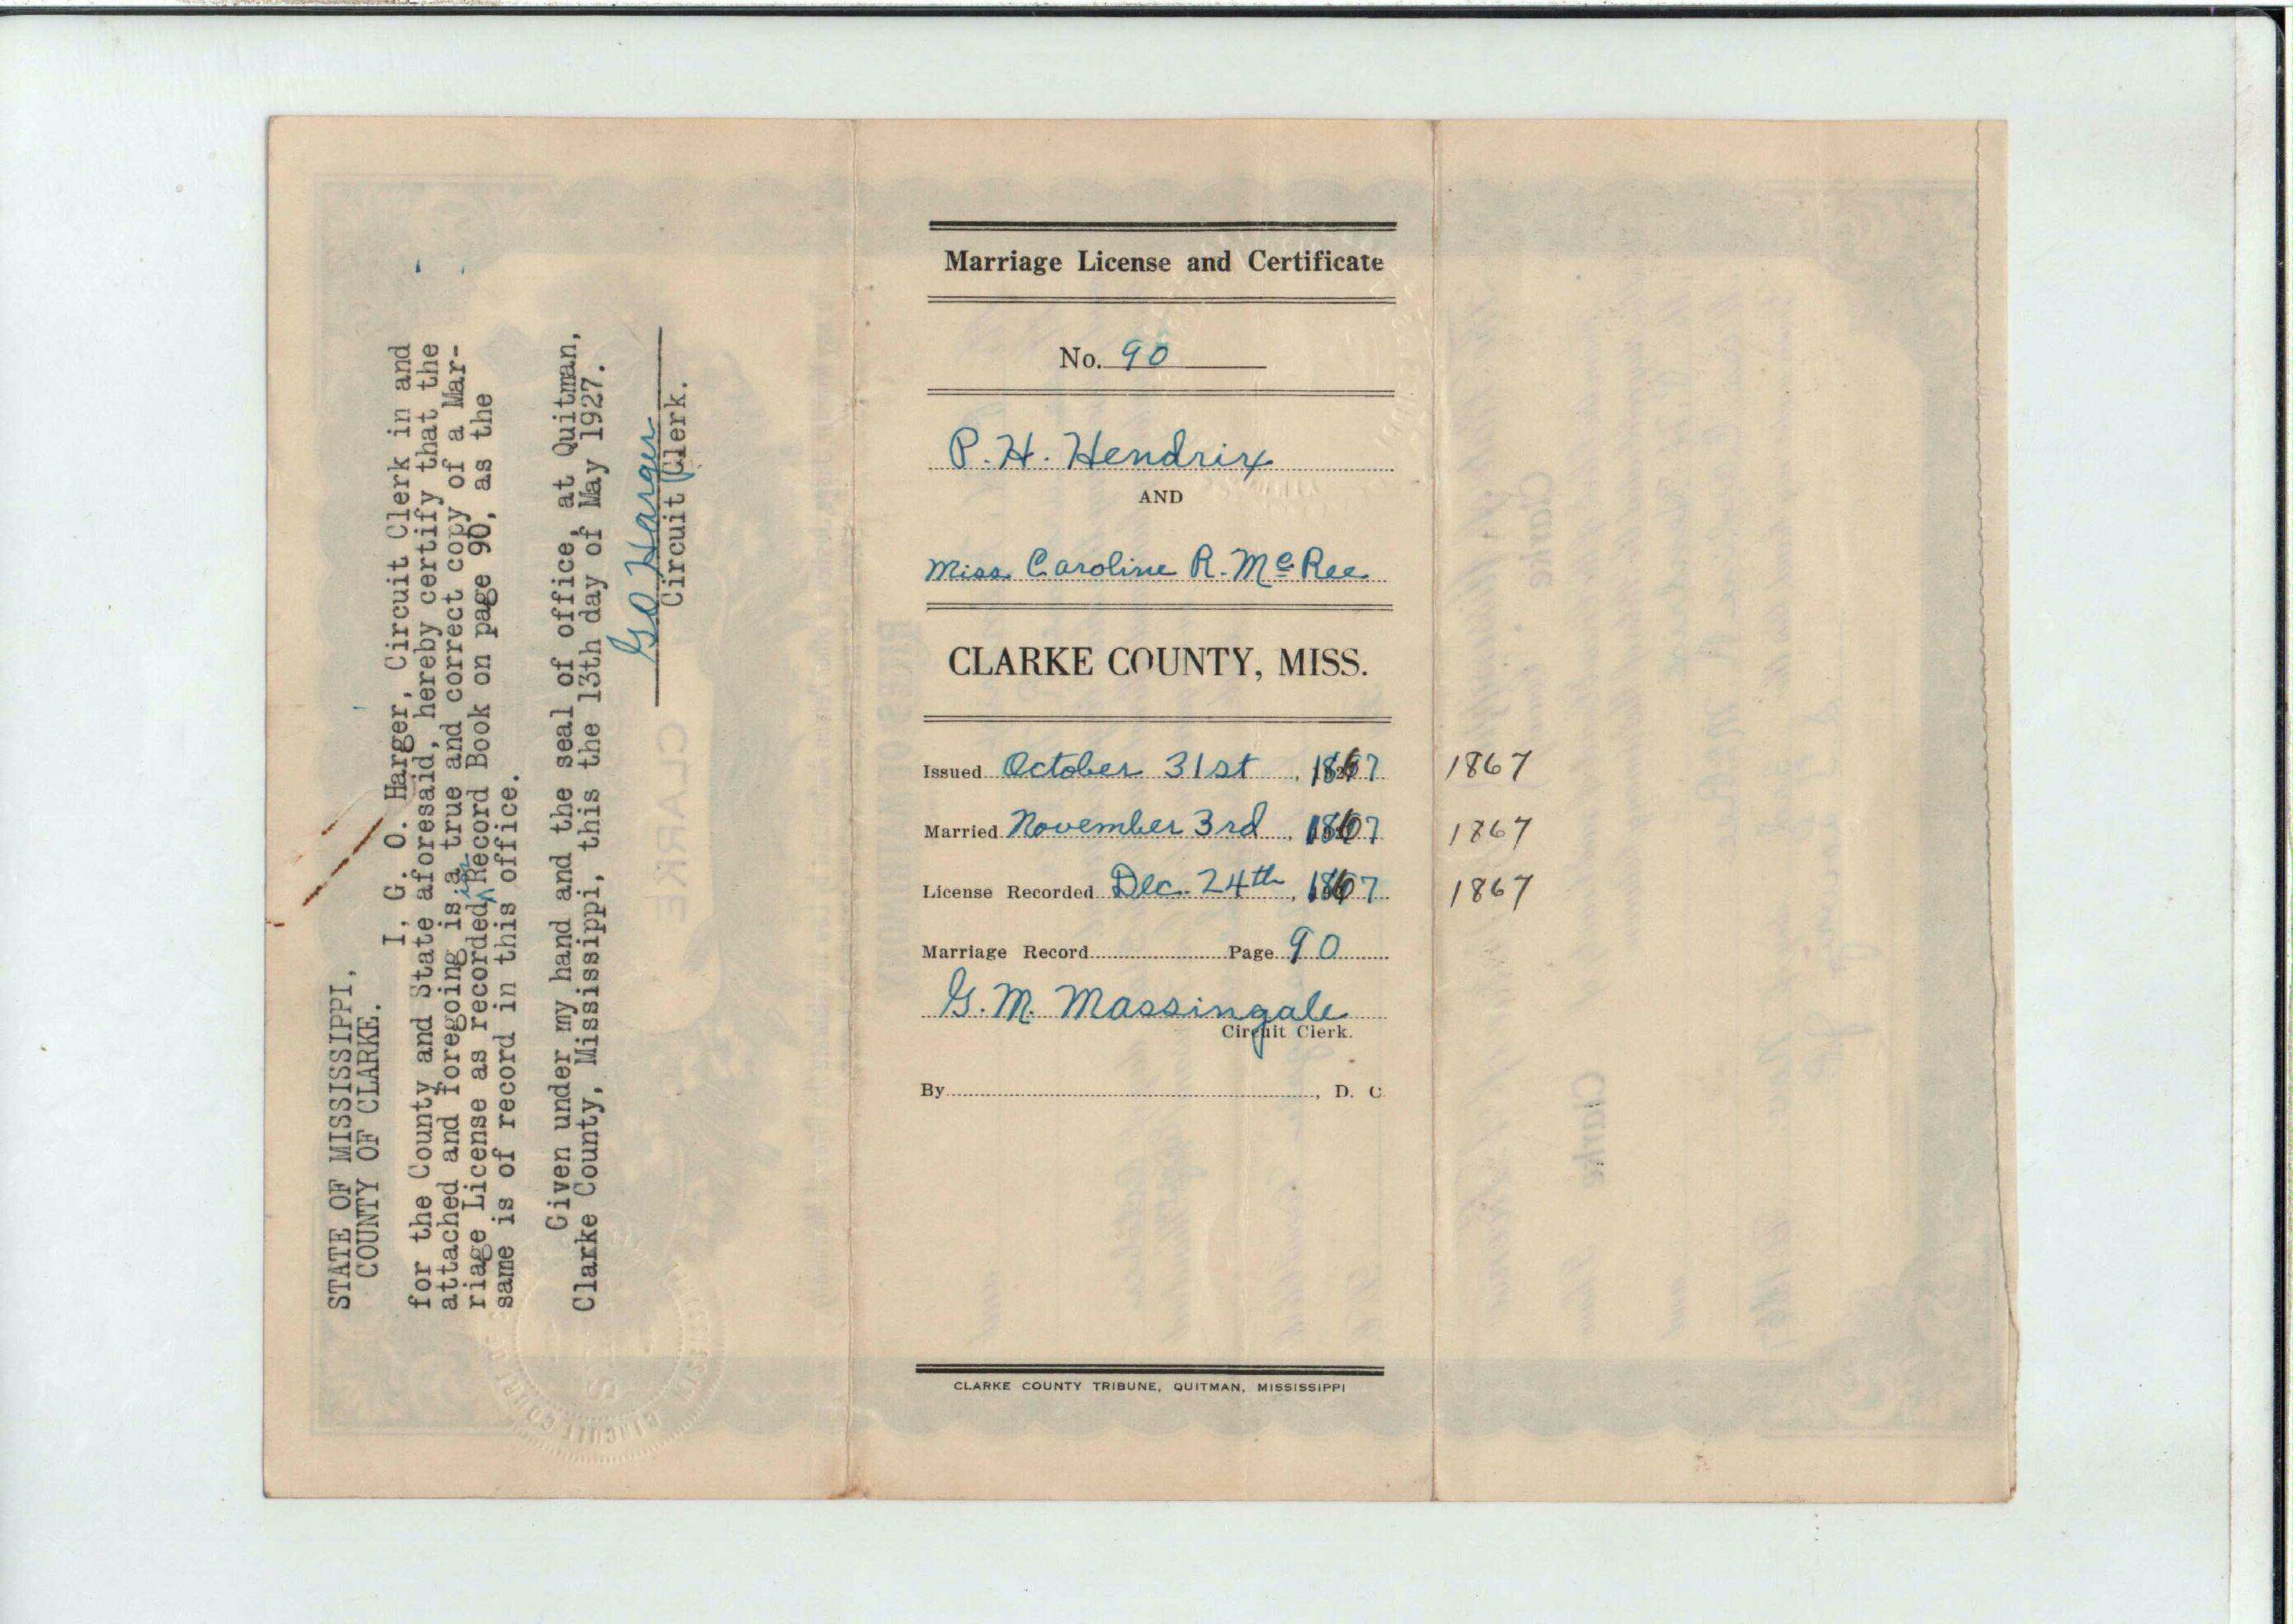 STATE OF MISSISSIPPI,
COUNTY OF CLARKE.
I, G. O. Harger, Circuit Clerk in and
for the County and State aforesaid, hereby certify that the
attached and foregoing is a true and correct copy of a Mar-
riage License as recorded in Record Book on page 90, as the
same is of record in this office.
Given under my hand and the seal of office, at Quitman,
Clarke County, Mississippi, this the 13th day of May 1927.
G O Harger
Circuit Clerk.
Marriage License and Certificate
No. 90
P. H. Hendrix
AND
Miss Caroline R. McRee
CLARKE COUNTY, MISS.
Issued October 31st, 1867 1867
Married November 3rd, 1867 1867
License Recorded Dec. 24th, 1867 1867
Marriage Record Page 90
G. M. Massingale
Circuit Clerk.
By , D. C.
CLARKE COUNTY TRIBUNE, QUITMAN, MISSISSIPPI